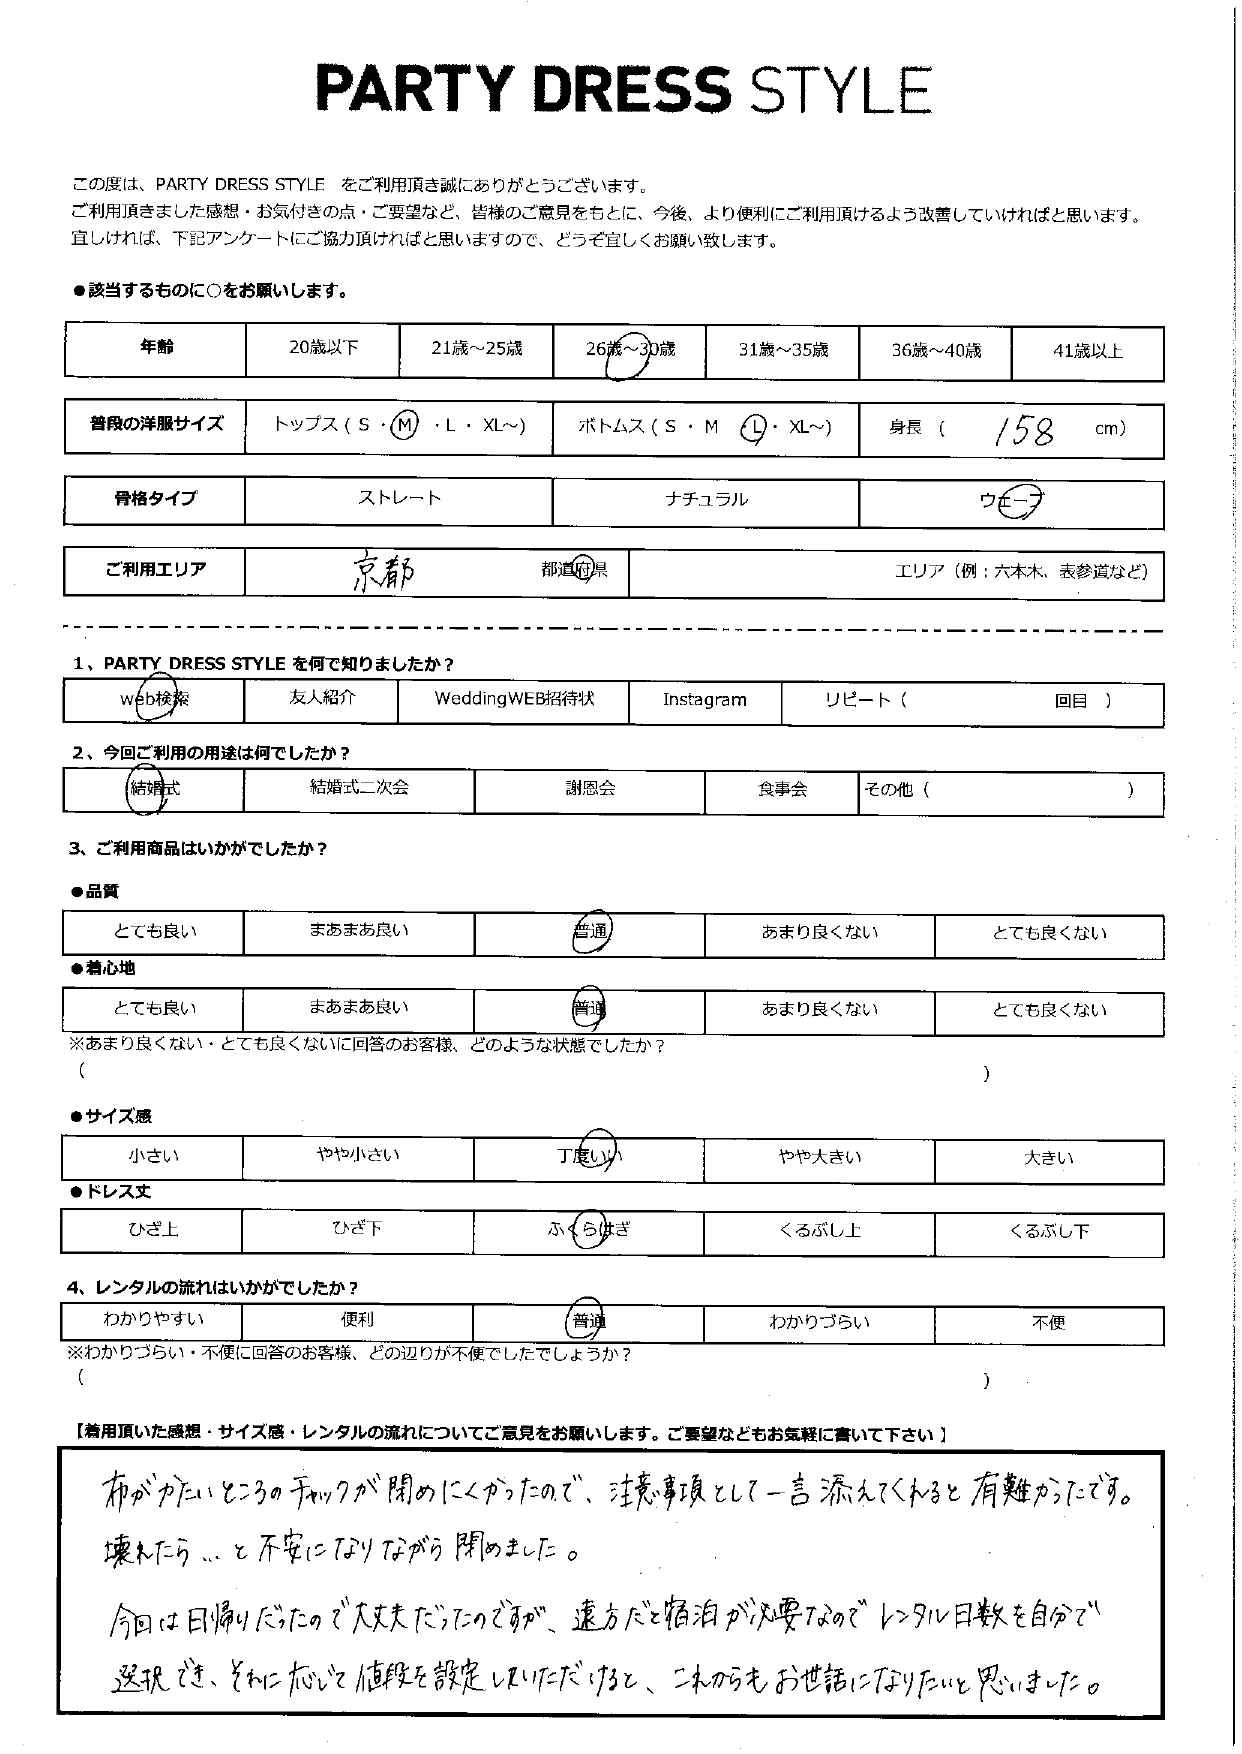 PARTY DRESS STYLE
この度は、PARTY DRESS STYLE をご利用頂き誠にありがとうございます。
ご利用頂きました感想・お気付きの点・ご要望など、皆様のご意見をもとに、今後、より便利にご利用頂けるよう改善していければと思います。
宜しければ、下記アンケートにご協力頂ければと思いますので、どうぞ宜しくお願い致します。
●該当するものに○をお願いします。
年齢 20歳以下 21歳～25歳 26歳～30歳 31歳～35歳 36歳～40歳 41歳以上
普段の洋服サイズ トップス ( S ・ M ・ L ・ XL～) ボトムス ( S ・ M L ・ XL～) 身長 ( 158 cm)
骨格タイプ ストレート ナチュラル ウェーブ
ご利用エリア 京都 都道府県 エリア (例：六本木、表参道など)
1、PARTY DRESS STYLE を何で知りましたか？
web検索 友人紹介 WeddingWEB招待状 Instagram リピート ( 回目 )
2、今回ご利用の用途は何でしたか？
結婚式 結婚式二次会 謝恩会 食事会 その他 ( )
3、ご利用商品はいかがでしたか？
●品質
とても良い まあまあ良い 普通 あまり良くない とても良くない
●着心地
とても良い まあまあ良い 普通 あまり良くない とても良くない
※あまり良くない・とても良くないに回答のお客様、どのような状態でしたか？
( )
●サイズ感
小さい やや小さい 丁度いい やや大きい 大きい
●ドレス丈
ひざ上 ひざ下 ふくらはぎ くるぶし上 くるぶし下
4、レンタルの流れはいかがでしたか？
わかりやすい 便利 普通 わかりづらい 不便
※わかりづらい・不便に回答のお客様、どの辺りが不便でしたでしょうか？
( )
【着用頂いた感想・サイズ感・レンタルの流れについてご意見をお願いします。ご要望などもお気軽に書いて下さい】
布がかたいところのチャックが閉めにくかったので、注意事項として一言添えてくれると有難かったです。
壊れたら…と不安になりながら閉めました。
今回は日帰りだったので大丈夫だったのですが、遠方だと宿泊が必要なのでレンタル日数を自分で
選択でき、それに応じて値段を設定していただけると、これからもお世話になりたいと思いました。